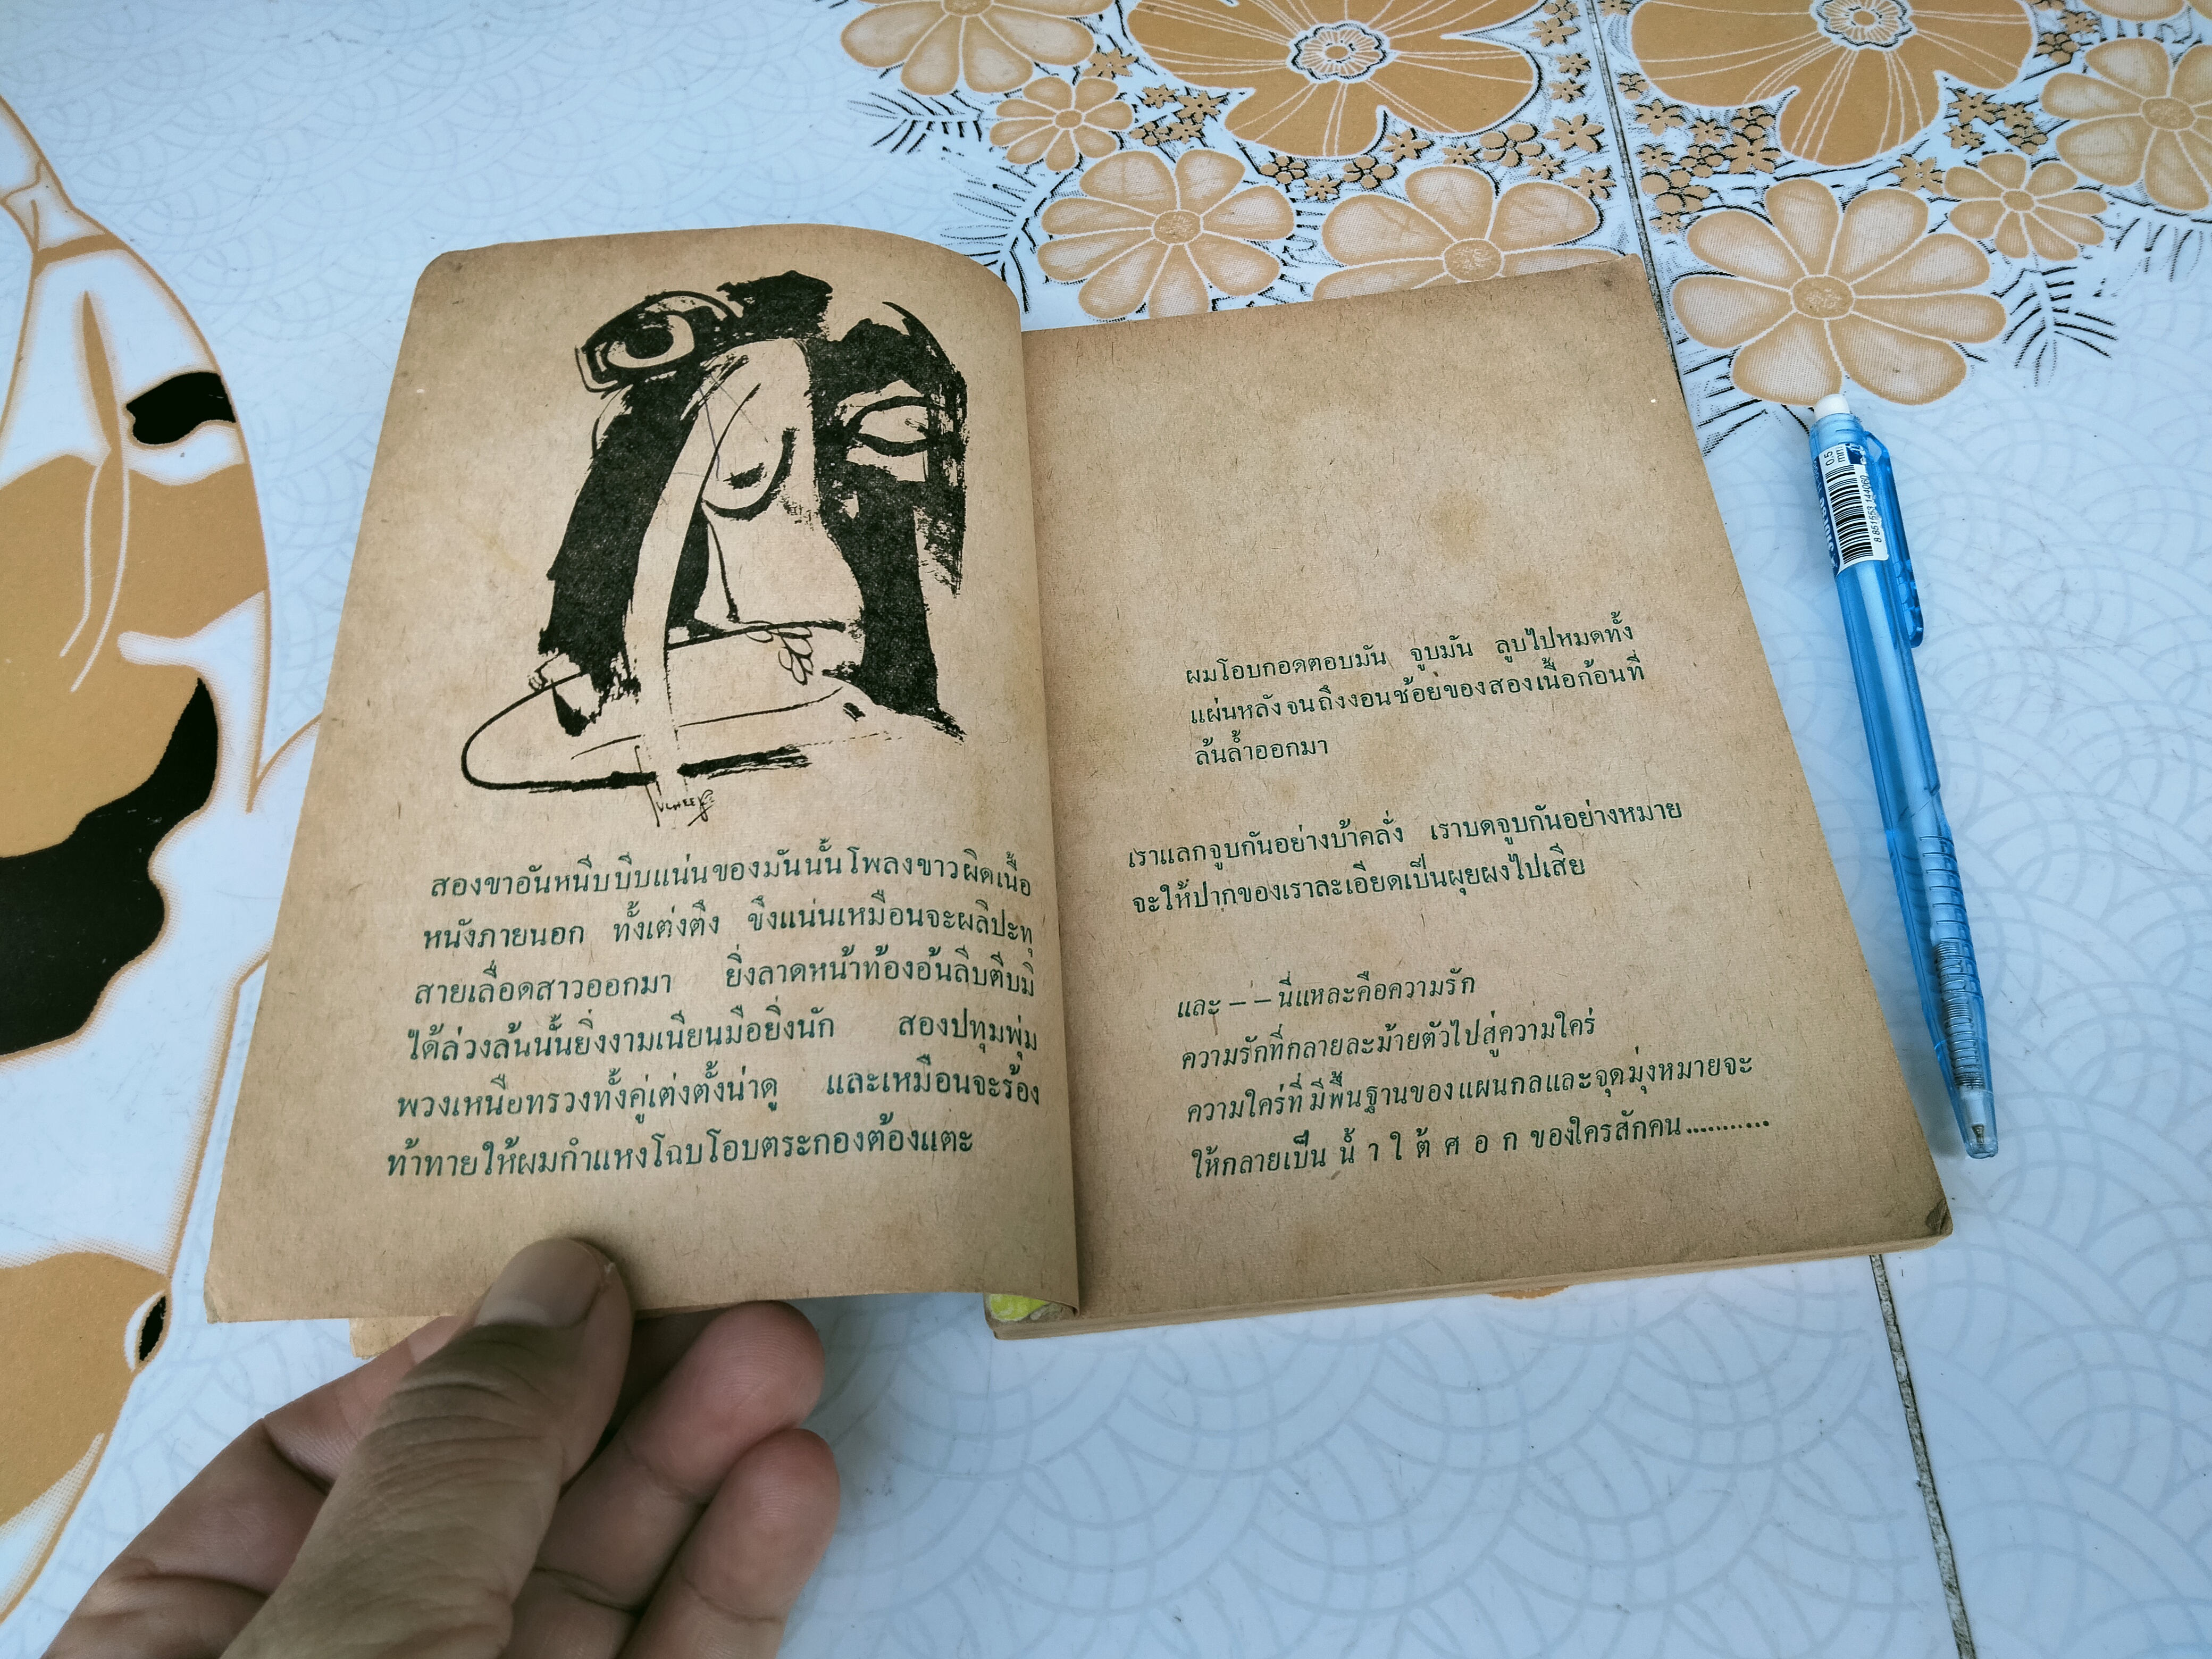 สองขาอันหนีบบีบแน่นของมันนั้นโพลงขาวผิดเนื้อ
หนังภายนอก ทั้งเต่งตึง ขึงแน่นเหมือนจะผลิปะทุ
สายเลื่อดสาวออกมา ยิ่งลาดหน้าท้องอ้นลีบตีบมิ
ได้ล่วงล้นนั้นยิ่งงามเนียนมือยิ่งนัก สองปทุมพุ่ม
พวงเหนือทรวงทั้งคู่เต่งตั้งน่าดู และเหมือนจะร้อง
ท้าทายให้ผมกำแหงโฉบโอบตระกองต้องแตะ
ผมโอบกอดตอบมัน จูบมัน ลูบไปหมดทั้ง
แผ่นหลังจนถึงงอนช้อยของสองเนื้อก้อนที่
ล้นล้ำออกมา
เราแลกจูบกันอย่างบ้าคลั่ง เราบดจูบกันอย่างหมาย
จะให้ปากของเราละเอียดเป็นผุยผงไปเสีย
และ – – นี่แหละคือความรัก
ความรักที่กลายละม้ายตัวไปสู่ความใคร่
ความใคร่ที่มีพื้นฐานของแผนกลและจุดมุ่งหมายจะ
ให้กลายเป็น น้ำ ใ ต้ ศ อ ก ของใครสักคน...........
0.5
mm
8 851553 144060